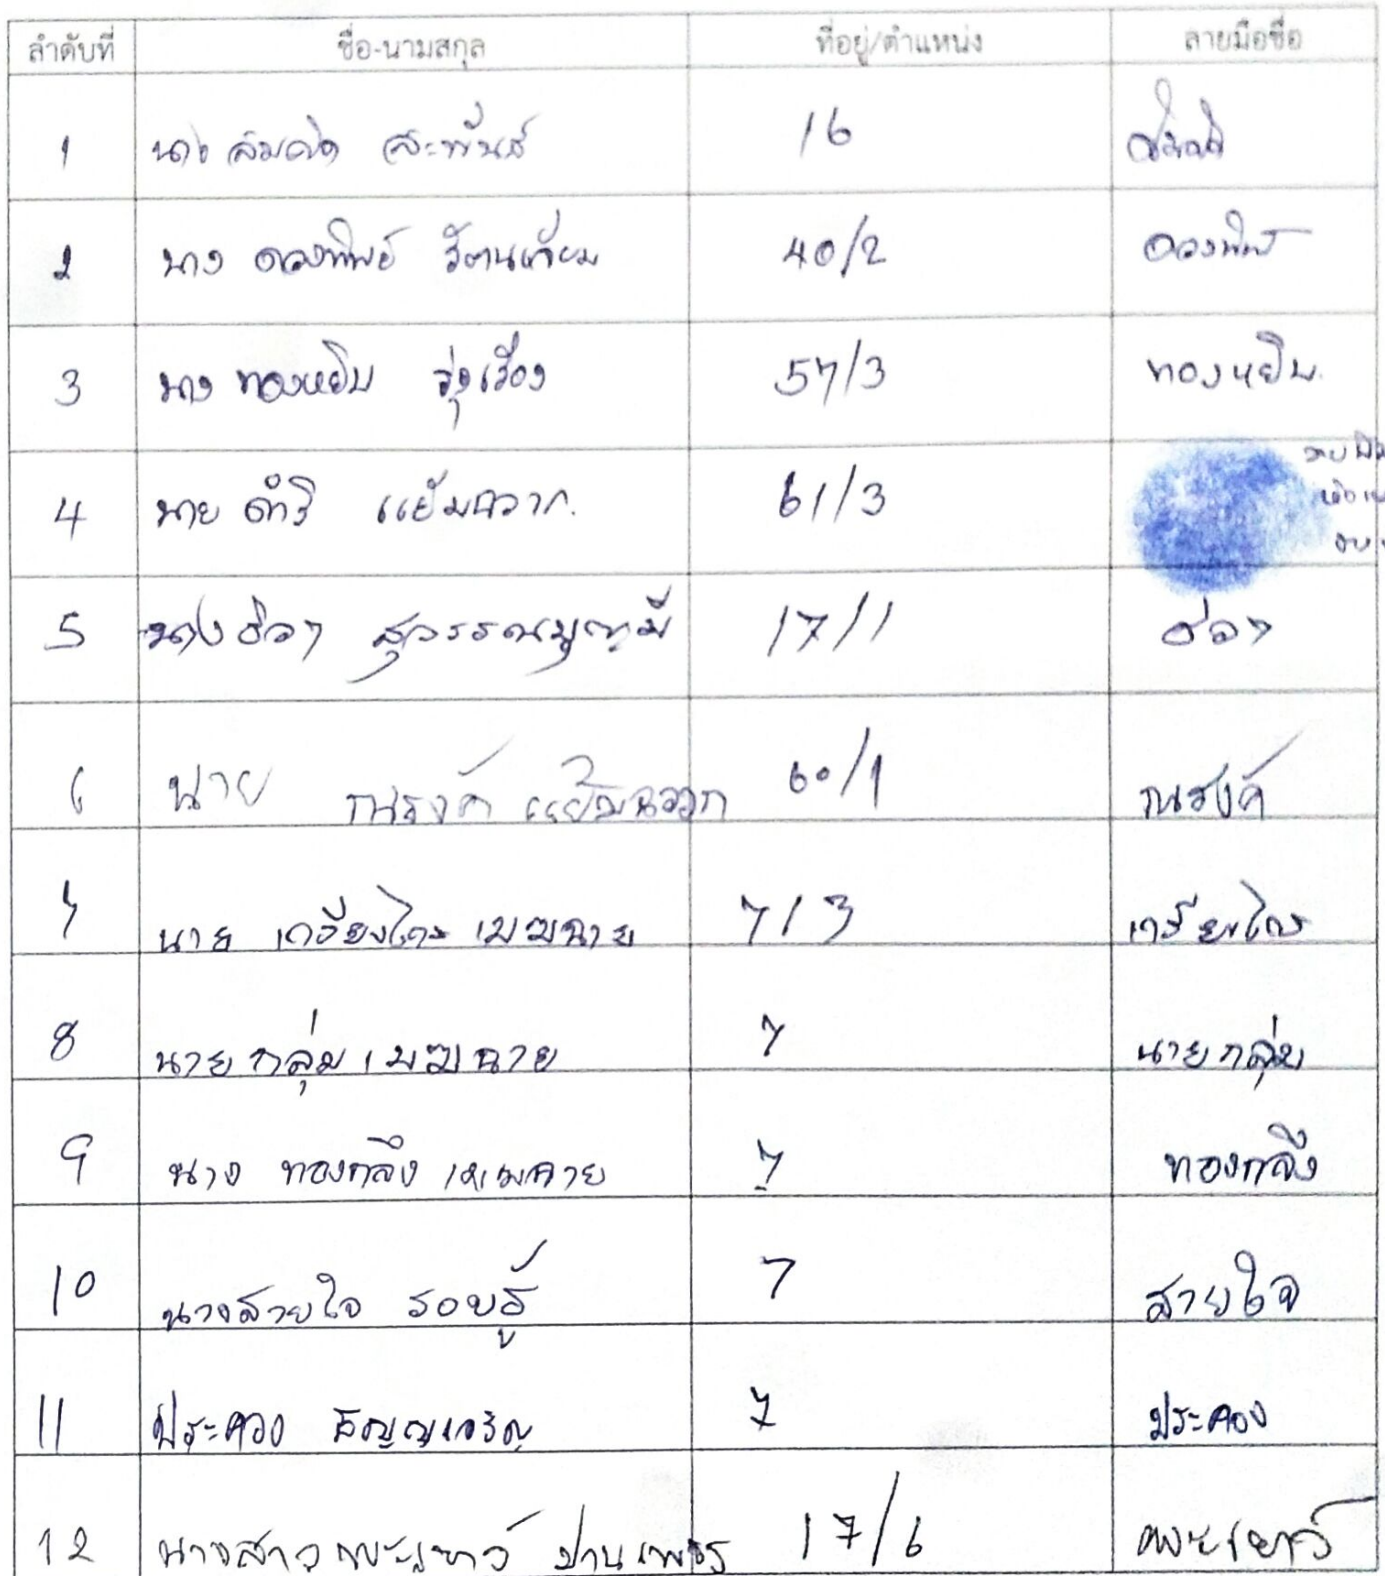 ลำดับที่ ชื่อ-นามสกุล ที่อยู่/ตำแหน่ง ลายมือชื่อ
1 นาง สมคิด สะพันธ์ 16 สมคิด
2 นาง ดวงทิพย์ 40/2 ดวงทิพย์
3 นาง ทองหยิบ รุ่งเรือง 57/3 ทองหยิบ
4 นาย ดำริ แย้มฉวาก 61/3
5 นาง สุวรรณบุญมี 17/1
6 นาย ณรงค์ แย้มฉวาก 60/1 ณรงค์
7 นาย เกรียงไกร เมฆฉาย 7/3 เกรียงไกร
8 นาย กลุ่ม เมฆฉาย 7 นาย กลุ่ม
9 นาง ทองกลึง 7 ทองกลึง
10 นางสายใจ รอบรู้ 7 สายใจ
11 ประคอง ธัญญเจริญ 7 ประคอง
12 นางสาว พะเยาว์ ปานเพชร 17/6 พะเยาว์